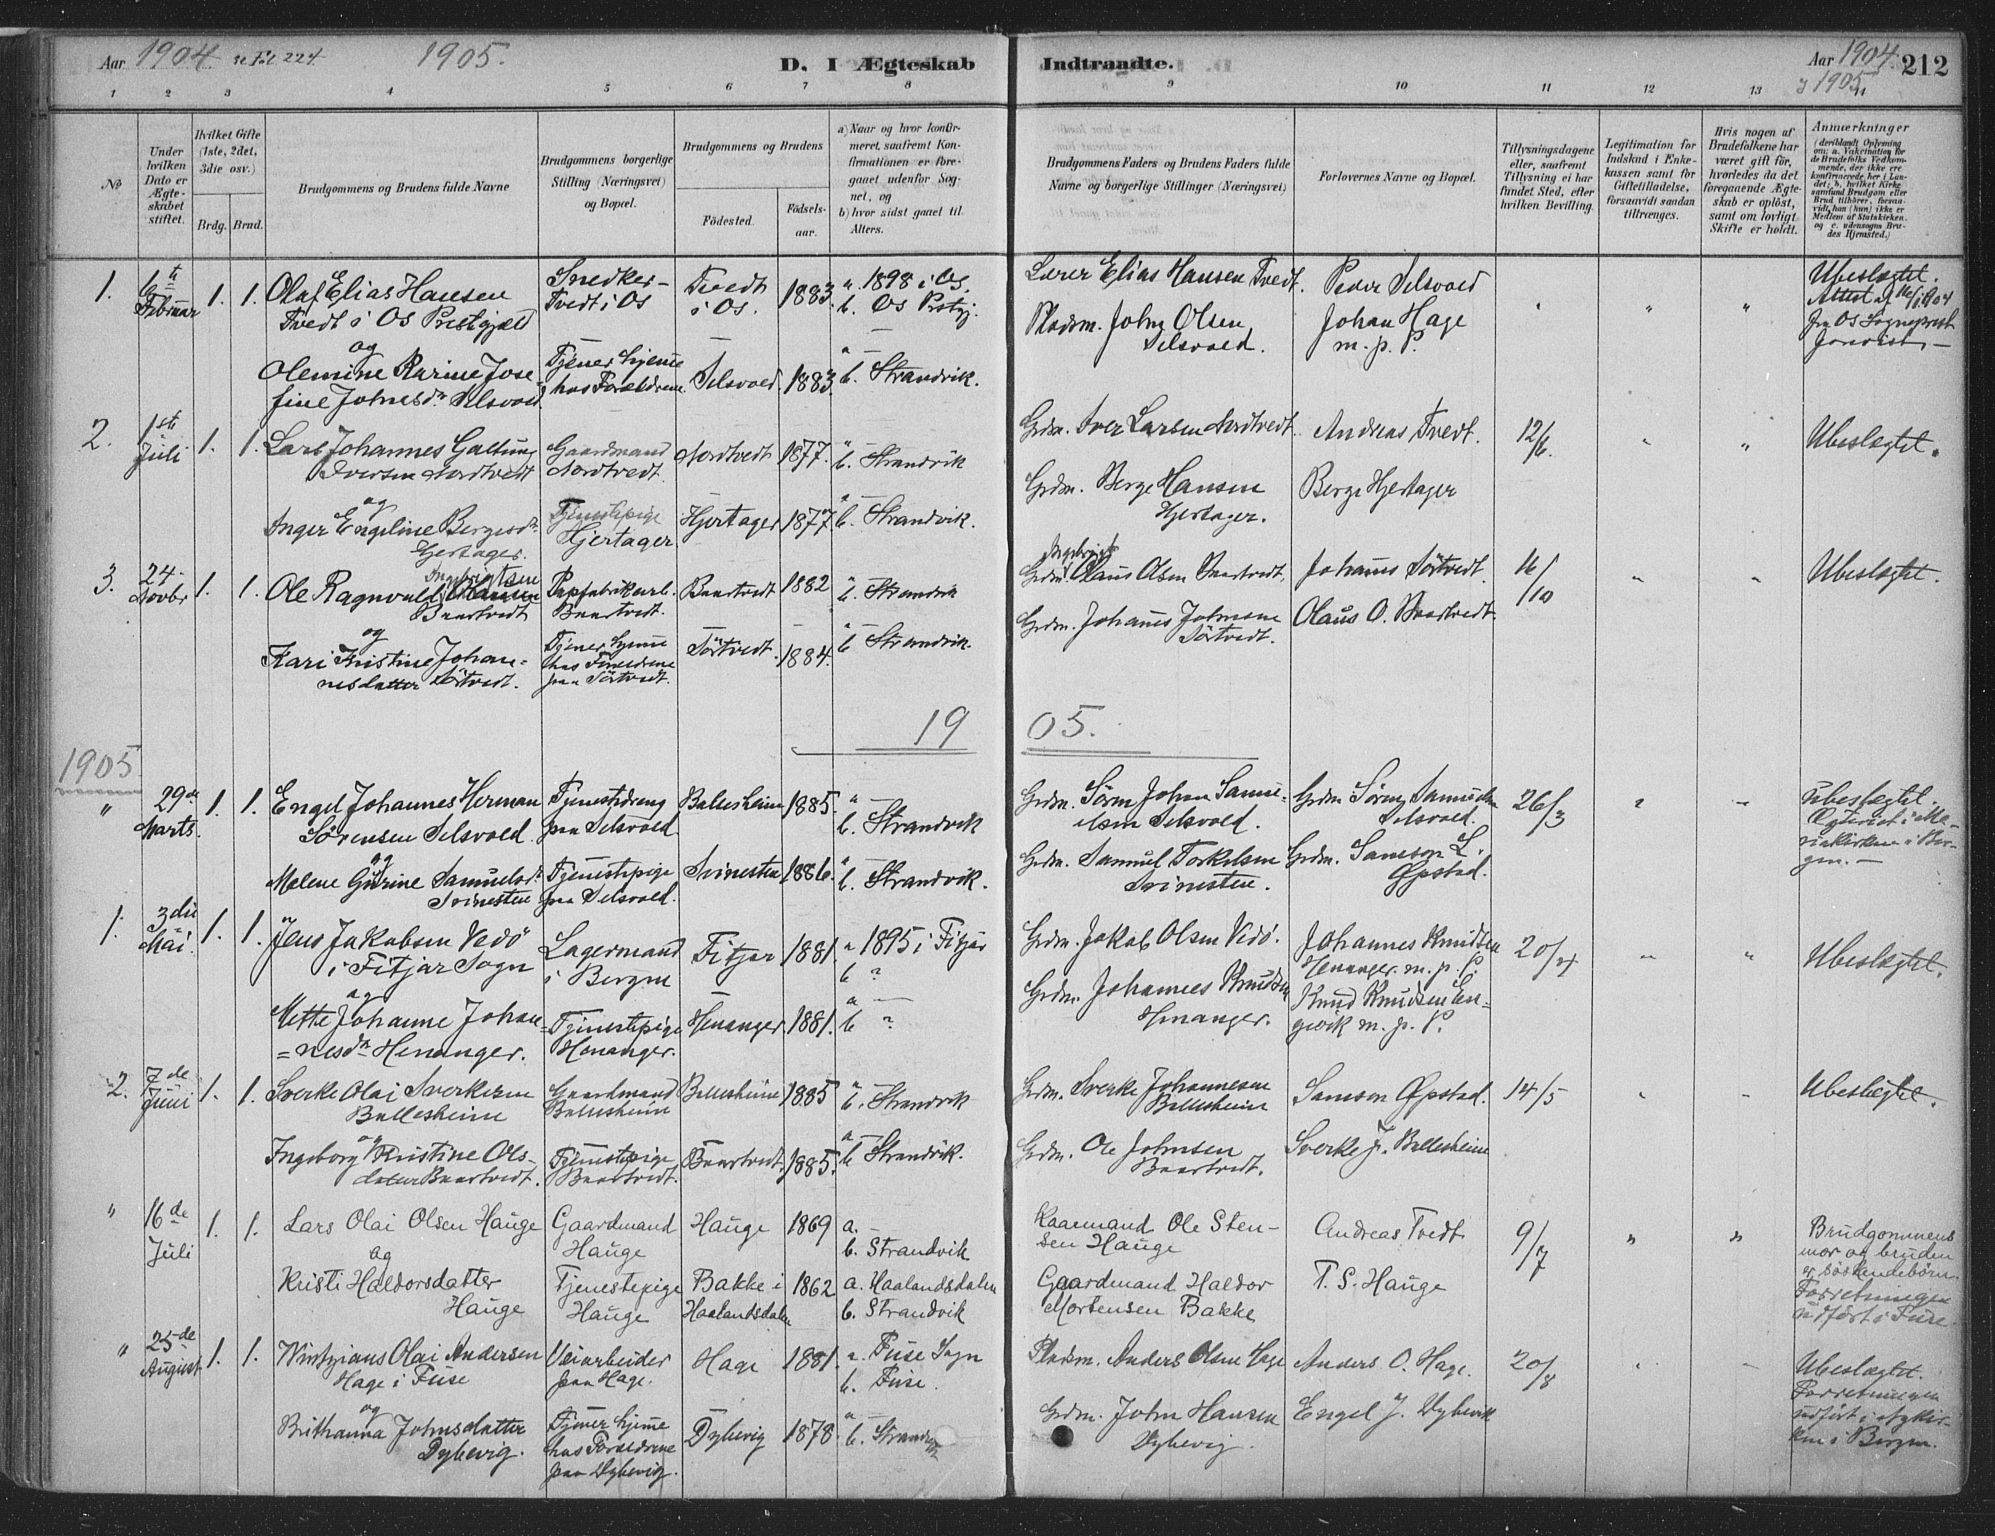 Aar 1904. 1905.
D. I Ægteskab Indtraadte.
Aar 1904. 212
1905
1 2 3 4 5 6 7 8 8 9 10 11 12 13
No
Under hvilken Dato er Ægteskabet stiftet.
Hvilket Gifte (1ste, 2det, 3die osv.)
Brdg. Brud.
Brudgommens og Brudens fulde Navne
Brudgommens borgerlige Stilling (Næringsvei) og Bopæl.
Brudgommens og Brudens
Fødested.
Fødselsaar.
a) Naar og hvor konfirmeret, saafremt Konfirmationen er foregaaet udenfor Sognet, og
b) hvor sidst gaaet til Alters.
Brudgommens Faders og Brudens Faders fulde Navne og borgerlige Stillinger (Næringsvei)
Forlovernes Navne og Bopæl.
Tillysningsdagene eller, saafremt Tillysning ei har fundet Sted, efter hvilken Bevilling.
Legitimation for Indskud i Enkekassen samt for Giftetilladelse, forsaavidt saadan tiltrænges.
Hvis nogen af Brudefolkene har været gift før, hvorledes da det foregaaende Ægteskab er opløst, samt om lovligt Skifte er holdt.
Anmærkninger
(deriblandt Oplysning om: a. Vakcination for de Brudefolks Vedkommende, der ikke ere konfirmerede her i Landet; b. hvilket Kirkesamfund Brudgom eller Brud tilhører, forsaavidt han (hun) ikke er Medlem af Statskirken, og c. udensogns Brudes Hjemsted.)
1. 6te Februar 1. 1. Olaf Elias Hansen Tvedt i Os Prestegjæld
Snedker - Tvedt i Os Tvedt i Os. 1883. a. 1898 i Os. b. Os Prstgj.
Lærer Elias Hansen Tvedt. Peder Selsvold
Ubeslægtet. Attest af 1904 fra Os Sogneprest
og
Olemine Karine Josefine Johnsdr Selsvold.
Tjener hjemme hos Forældrene. Selsvold. 1883. a — b. Strandvik.
Pladsm. John Olsen Selsvold. Johan Hage m. p. P.
2. 1ste Juli 1. 1. Lars Johannes Galtung Iversen Nordtvedt
Gaardmand Nordtvedt. Nordtvedt 1877. a — b. Strandvik
Grdm. Iver Larsen Nordtvedt. Andreas Tvedt. 12/6. Ubeslægtet.
og
Inger Engeline Bergesdr. Hjertager.
Tjenestepige Hjertager. Hjertager 1877. a — b. Strandvik.
Grdm. Berge Hansen Hjertager. Berge Hjertager
3. 24 - Novbr 1. 1. Ole Ragnvald Ingebrigtsen Baartvedt
Papfabrikarb. Baartvedt. Baartvedt 1882 a — b. Strandvik
Grdm. Olaus Olsen Baartvedt. Johannes Törtvedt. 16/10 Ubeslægtet.
og
Kari Kristine Johannesdatter Törtvedt.
Tjener hjemme hos Forældrene paa Törtvedt. Törtvedt 1884. a — b Strandvik.
Grdm. Johannes Johnsen Törtvedt. Olaus O. Baartvedt.
19 05.
1905
" 29de Marts. 1. 1. Engel Johannes Herman Sørensen Selsvold.
Tjenestedreng paa Selsvold. Ballesheim 1885. a — b. Strandvik
Grdm. Søren Johan Samuelsen Selsvold. Grdm Søren Samuelsen Selsvold. 26/3
Ubeslægtet. Ægteviet i Mariakirken i Bergen. —
og
Malene Gurine Samuelsdr Svinesten
Tjenestepige paa Selsvold. Svinesten 1886. a — b. Strandvik.
Grdm. Samuel Torkelsen Svinesten. Grdm. Samson L. Øpstad.
1. 3die Mai 1. 1. Jens Jakobsen Vedö i Fitjar Sogn
Lagermand i Bergen Fitjar 1881. a 1895 i Fitjar b ?
Grdm. Jakob Olsen Vedö. Johannes Knudsen Henanger. m. p. P. 20/4 Ubeslægtet.
og
Mette Johanne Johannesdr Henanger.
Tjenestepige Henanger. Henanger. 1881. a — b ?
Grdm. Johannes Knudsen Henanger. Knud Knudsen Engevik m. p. P.
2. 7de Juni 1. 1. Sverke Olai Sverkesen Ballesheim
Gaardmand Ballesheim Ballesheim 1885 a — b. Strandvik
Grdm. Sverke Johannesen Ballesheim Samson Øpstad. 14/5 Ubeslægtet.
og
Ingeborg Kristine Olsdatter Baartvedt.
Tjenestepige Baartvedt. Baartvedt. 1885. a — b Strandvik.
Grdm. Ole Johnsen Baartvedt. Sverke J. Ballesheim
" 16de Juli 1. 1. Lars Olai Olsen Hauge
Gaardmand Hauge Hauge 1869 a. — b. Strandvik
Kaarmand Ole Stensen Hauge Andreas Tvedt 9/7
Brudgommens mor og bruden er søskendebörn. Forretningen udført i Fuse.
og
Kristi Haldorsdatter Hauge
Tjenestepige Hauge Bakke i Haalandsdalen 1862 a. Haalandsdalen b. Strandvik
Gaardmand Haldor Mortensen Bakke T. S. Hauge
" 25de August 1. 1. Olai Andersen Hage i Fuse
Veiarbeider paa Hage. Hage 1881. a. Fuse Sogn b. Fuse.
Pladsm. Anders Olsen Hage Anders O. Hage. 20/8
Ubeslægtet. Forretningen udført i Nykirken i Bergen.
og
Brithanna Johnsdatter Dybevig.
Tjener hjemme hos Forældrene paa Dybevig. Dybevig 1878. a — b. Strandvik
Grdm. John Hansen Dybevig. Engel J. Dybevik